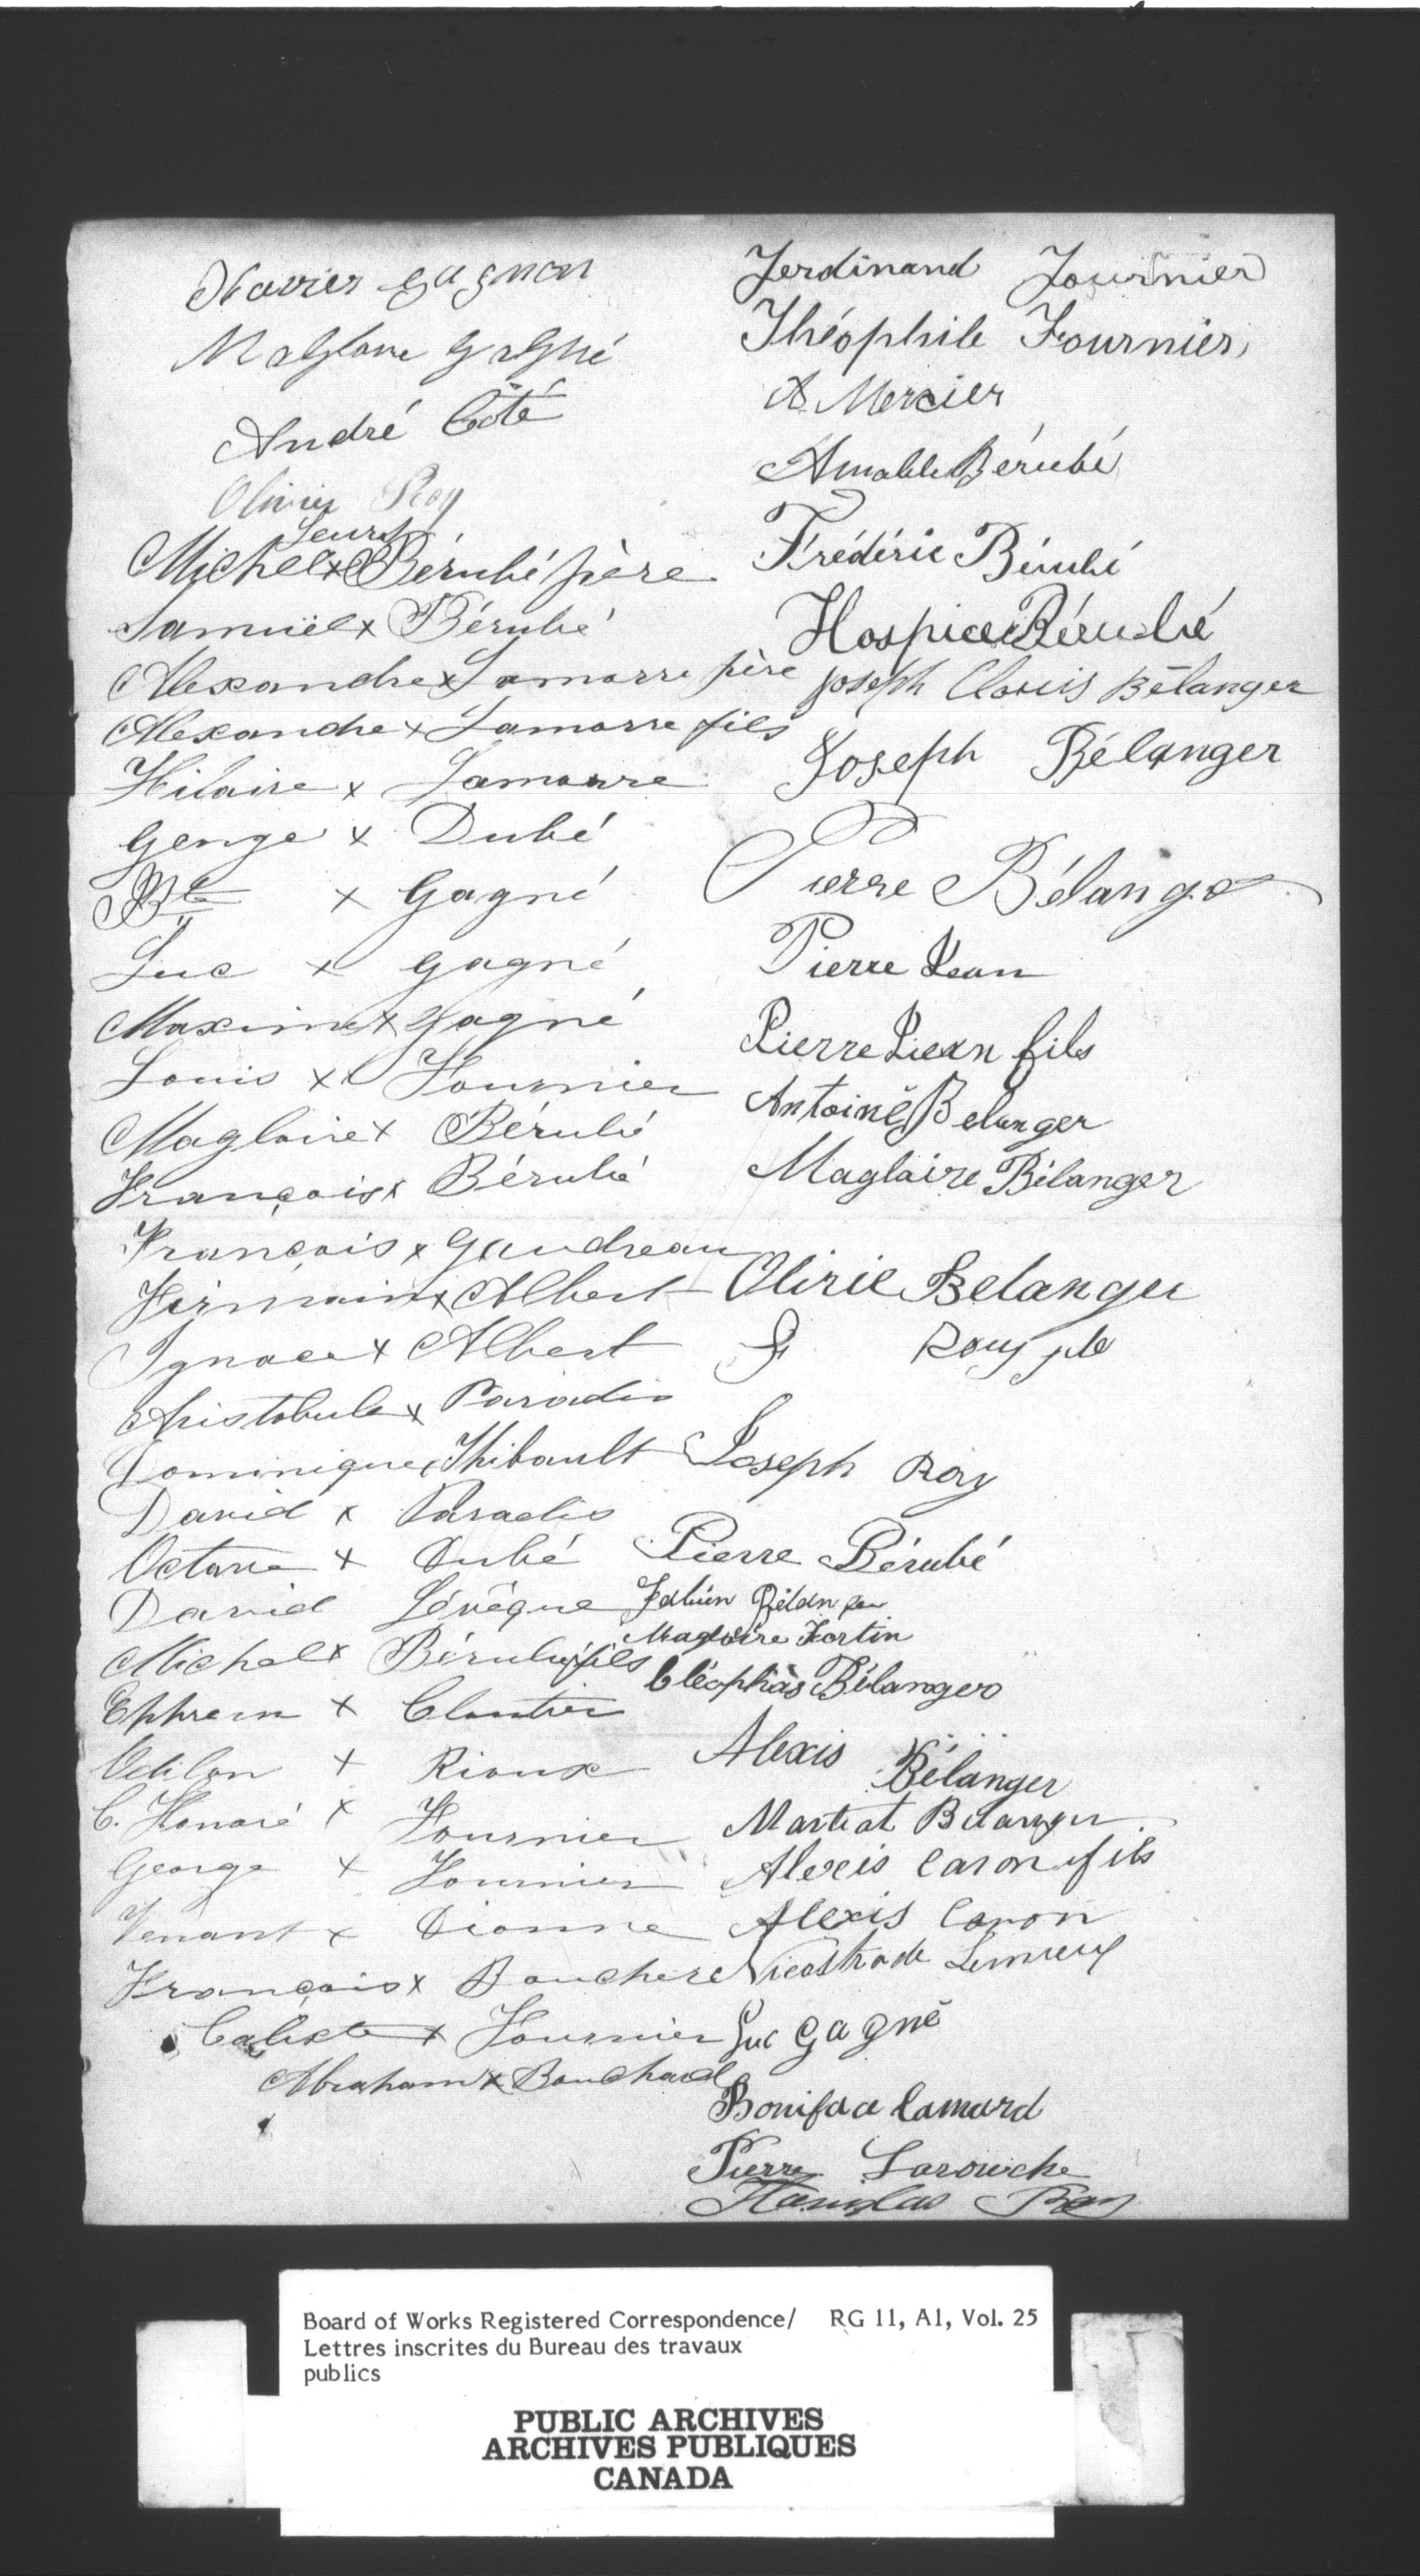 Xavier gagnon
Magloire gagné
André Côté
Olivier Roy
Leurs
Michel x Bérubé père
Samuël x Bérubé
Alexandre x Lamarre père
Alexandre x Lamarre fils
Hilaire x Lamarre
George x Dubé
Bte x Gagné
Luc x gagné
Maxime x gagné
Louis x Fournier
Magloire x Bérubé
François x Bérubé
François x Gaudreau
Firmain x Albert
Ignace x Albert
Aristobule x Paradis
Dominique x Thibault
David x Paradis
Octave x Dubé
David Lévêque
Michel x Bérubé fils
Ephrem x Cloutier
Odilon x Rioux
C. Honoré x Fournier
George x Fournier
Venant x Dionne
François x Boucher
Calixte x Fournier
Abraham x Bouchard
Ferdinand Fournier
Théophile Fournier
A Mercier
Amable Bérubé
Frédéric Bérubé
Hospice Bérubé
joseph Clovis Bélanger
Joseph Bélanger
Pierre Bélanger
Pierre Jean
Pierre Jean fils
Antoine Belanger
Magloire Bélanger
Olirie Belanger
Roy
Joseph Roy
Pierre Bérubé
Fabien
Magloire Fortin
Cléophas Bélanger
Alexis Bélanger
Martial Belanger
Alexis Caron fils
Alexis Caron
Nicostrade Lemieux
Luc Gagné
Boniface Camard
Pierre Larouche
Stanislas Roy
Board of Works Registered Correspondence/ RG 11, A1, Vol. 25
Lettres inscrites du Bureau des travaux
publics
PUBLIC ARCHIVES
ARCHIVES PUBLIQUES
CANADA